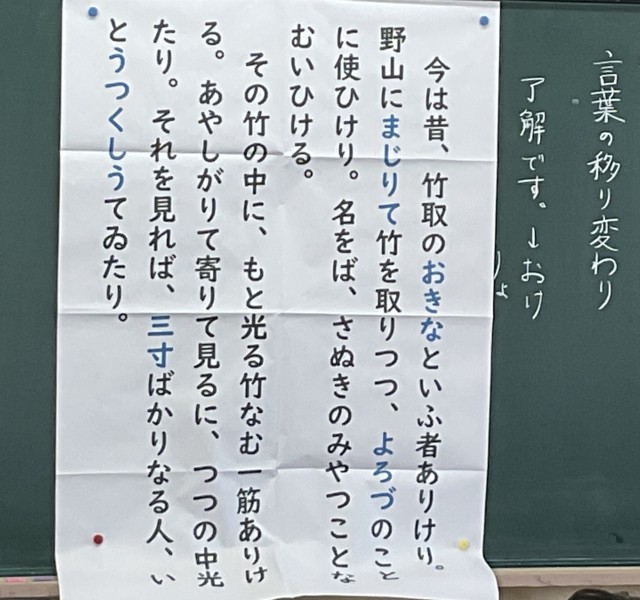 言葉の移り変わり
了解です。→おけ
りょ
今は昔、竹取のおきなといふ者ありけり。
野山にまじりて竹を取りつつ、よろづのこと
に使ひけり。名をば、さぬきのみやつことな
むいひける。
その竹の中に、もと光る竹なむ一筋ありけ
る。あやしがりて寄りて見るに、つつの中光
たり。それを見れば、三寸ばかりなる人、い
とうつくしうてゐたり。